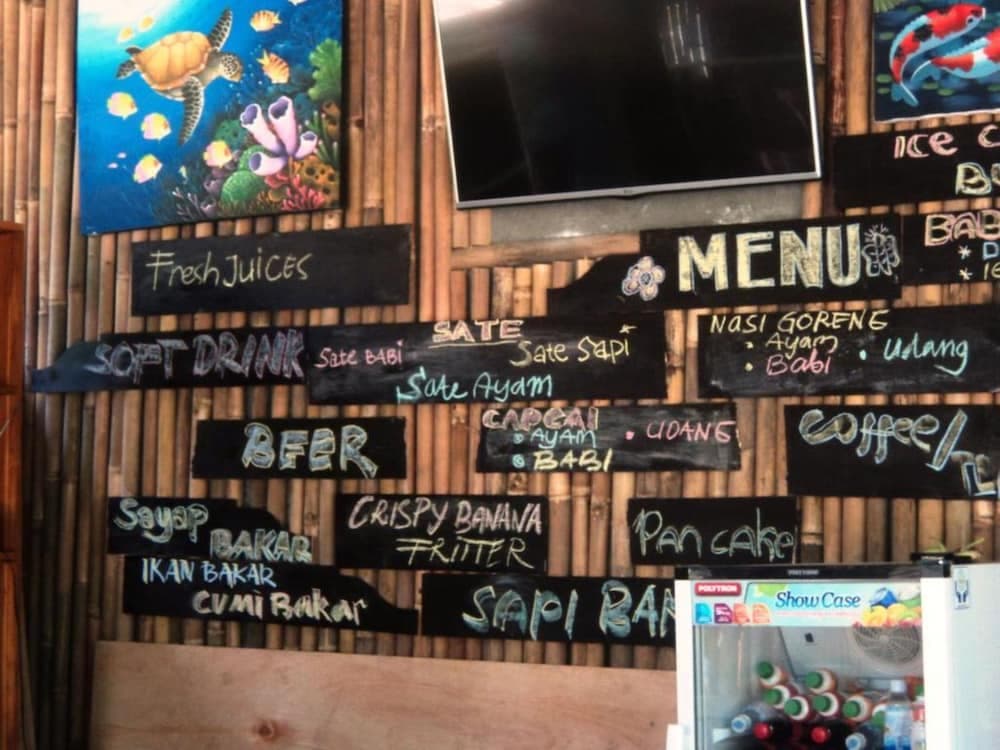 ICE C
B
Fresh JUICES
MENU
BAB
* D
SOFT DRINK
SATE
Sate BABi
Sate Sapi
Sate Ayam
NASI GORENG
• Ayam
• Babi
• Udang
BEER
CAPCAI
• AYAM
• BABI
• UDANG
Coffee/
Sayap
BAKAR
CRISPY BANANA
FRITTER
Pancake
IKAN BAKAR
CUMi Bakar
SAPI BA
POLYTRON
Show Case